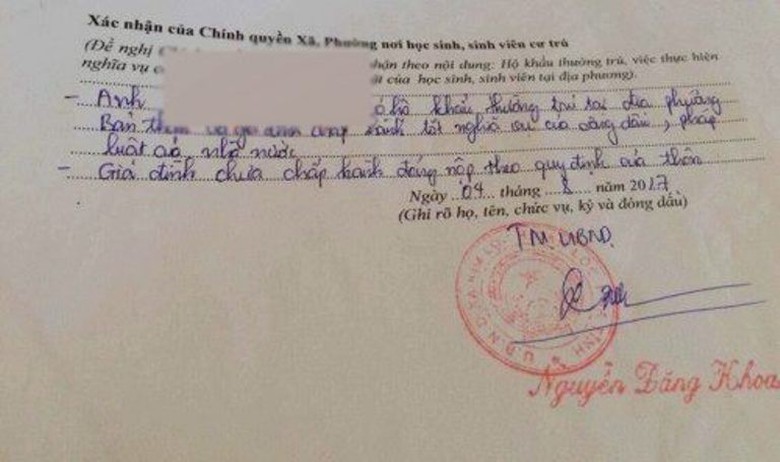 Xác nhận của Chính quyền Xã, Phường nơi học sinh, sinh viên cư trú
(Đề nghị nhận theo nội dung: Hộ khẩu thường trú, việc thực hiện
nghĩa vụ c của học sinh, sinh viên tại địa phương).
- Anh có hộ khẩu thường trú tại địa phương
Bản thân hành tốt nghĩa vụ của công dân, pháp
luật của nhà nước
- Gia đình chưa chấp hành đóng nộp theo quy định của thôn
Ngày 04 tháng 8 năm 2017
(Ghi rõ họ, tên, chức vụ, ký và đóng dấu)
TM UBND.
U.B.N.D XÃ
Nguyễn Đăng Khoa